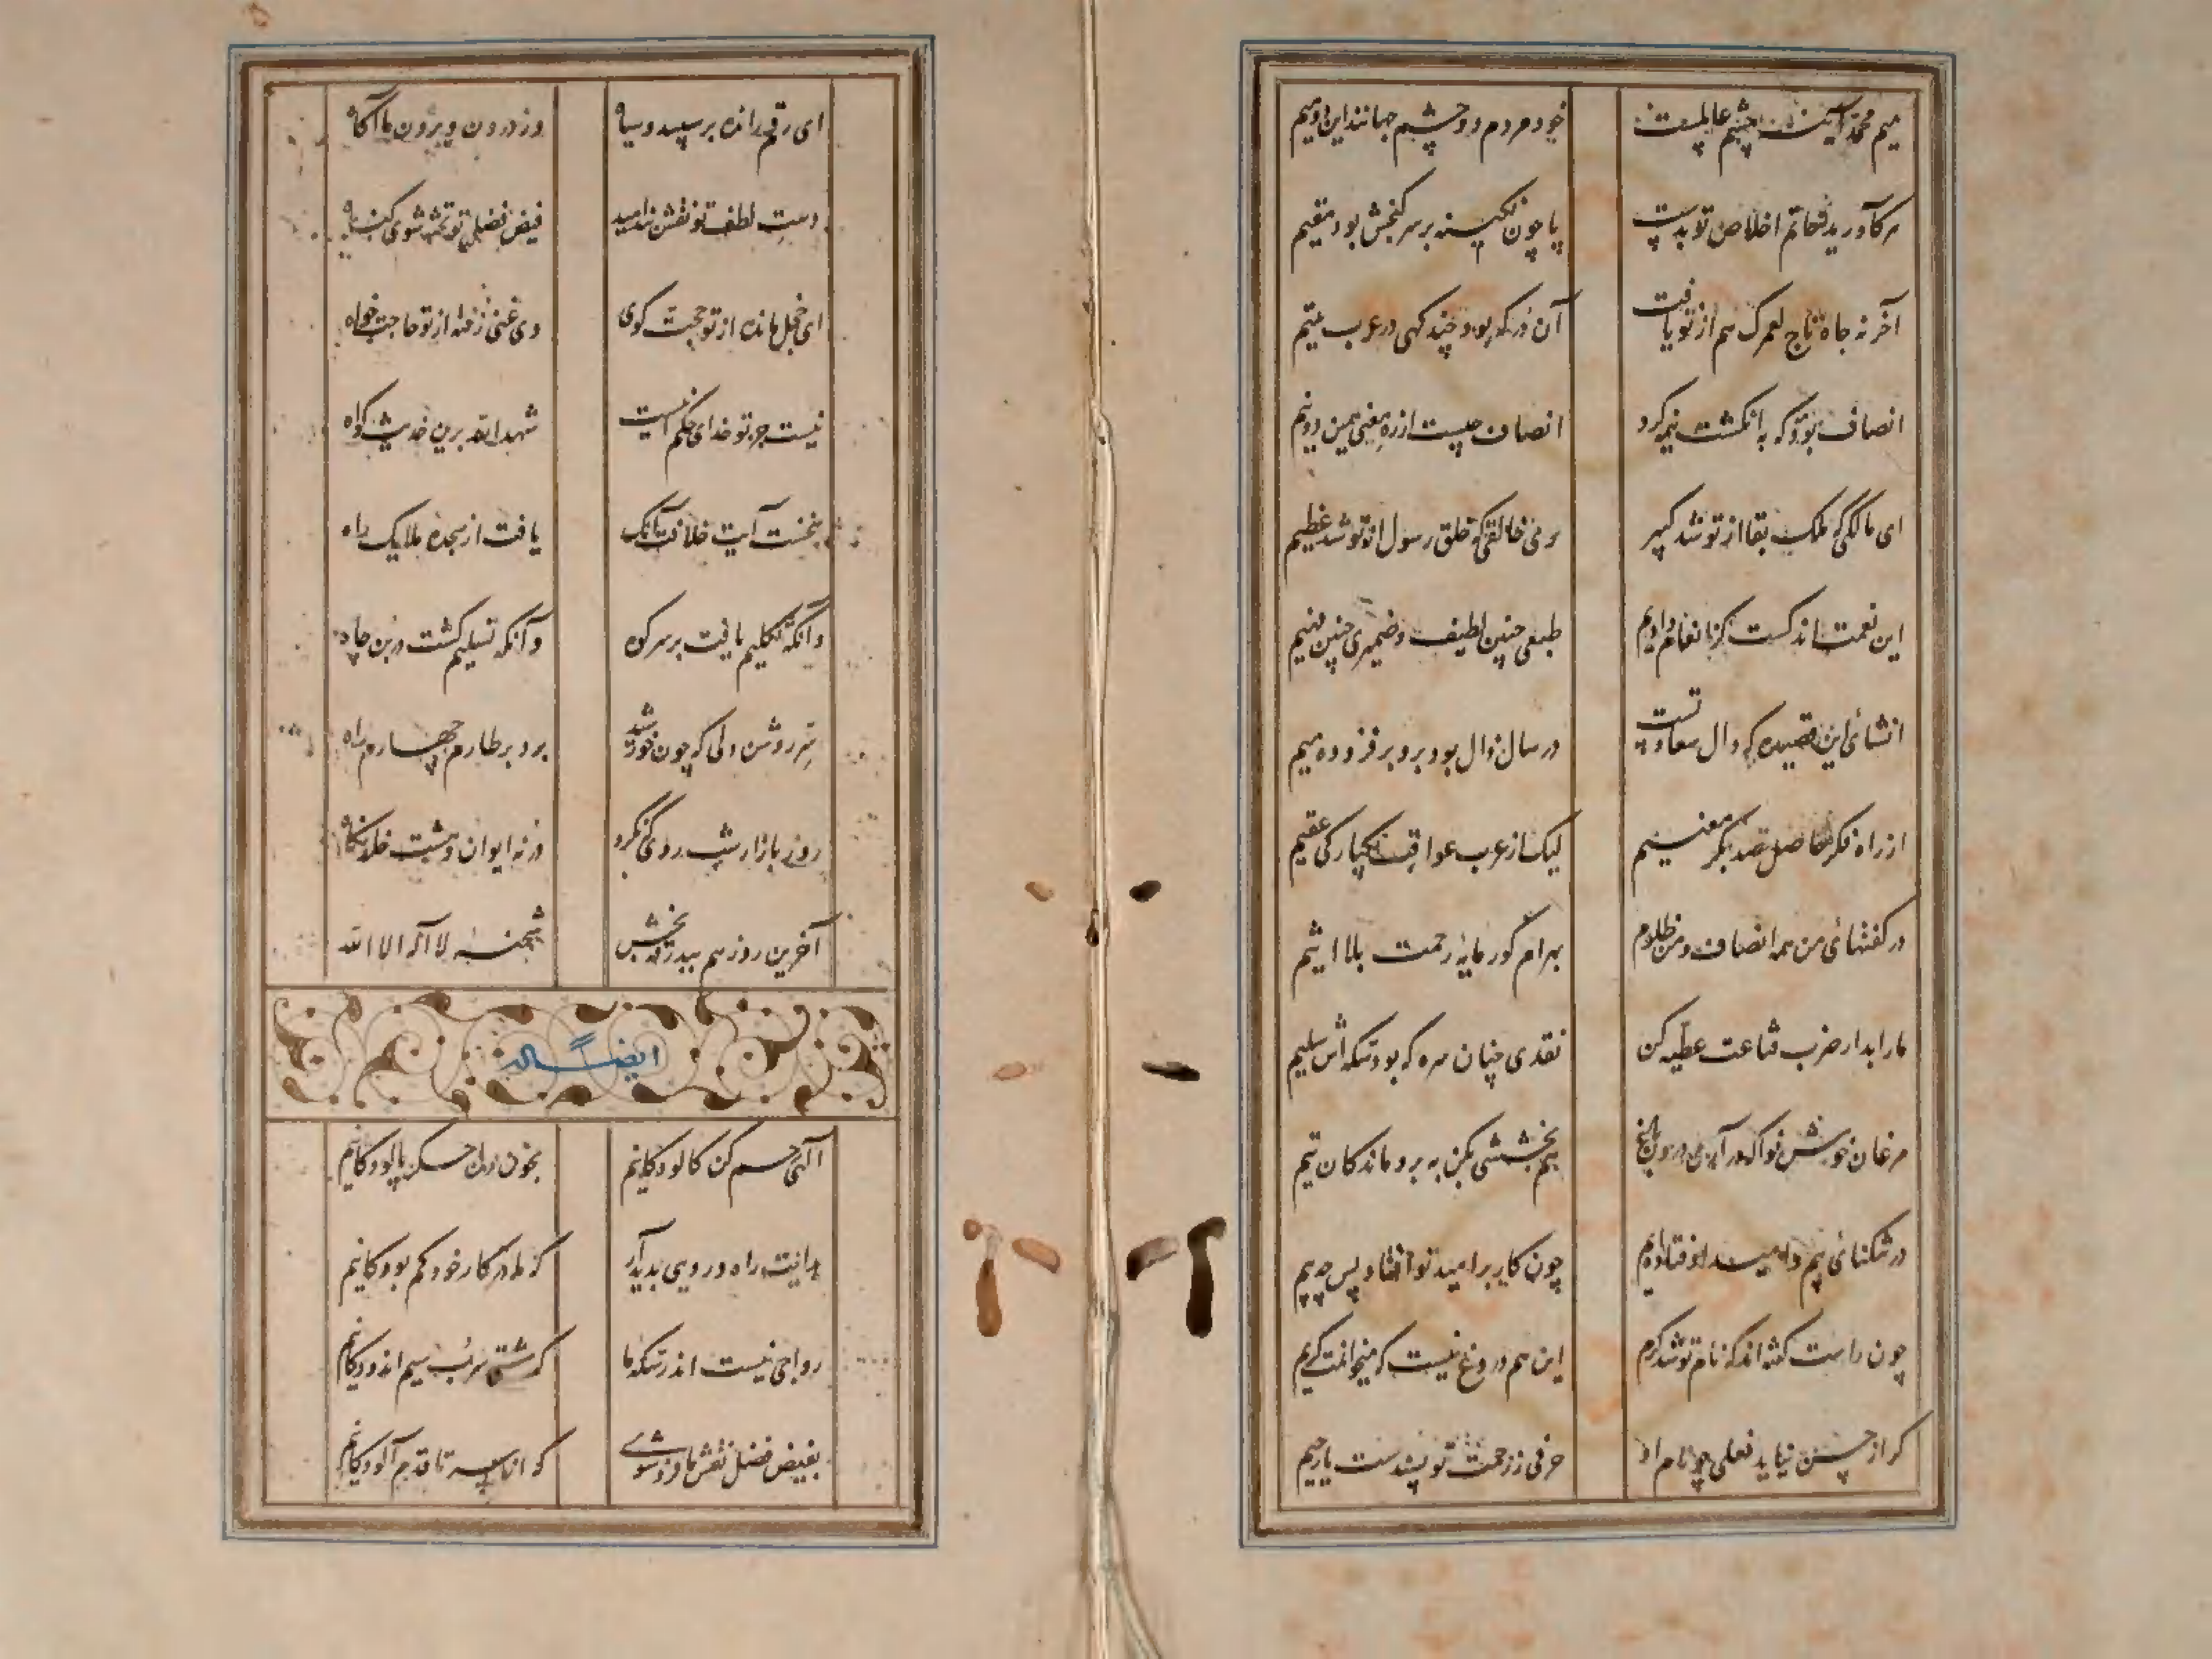 میم محمد آینه چشم عالمست
خود مردم دو چشم جهانند این دو میم
هرکآورید خاتم اخلاص تو بدست
پا چون نگینه بر سر گنجش بود مقیم
آخر نه جاه تاج لعمرک هم از تو یافت
آن در که بود چند کهی در عرب یتیم
انصاف بود که به انکشت نیم کرد
انصاف چیست از ره معنی همین دو نیم
ای مالکی که ملک بقا از تو شد کبیر
وی خالقی که خلق رسول از تو شد عظیم
این نعمت اندکست کز انعام دادیم
طبعی چنین لطیف و ضمیری چنین فهیم
انشای این قصیده که دال سعادتست
در سال ذال بود برو بر فزوده میم
از راه فکر حاصل صد بکر معنیم
لیک از عرب عواقب یکبارکی عقیم
در کفتهای من همه انصاف و من ظلوم
بهرام کور مایه رحمت بلا اثیم
ما را بدار ضرب قناعت عطیه کن
نقدی چنان سره که بود سکه اش سلیم
مرغان خورش فواکه در آرزوی
هم بخششی بکن به برو ماندکان تیم
در تنکنای بیم و امید اوفتاده ایم
چون کار بر امید تو افتاد پس چه بیم
چون راست کفته اند که نام تو شد کرم
این هم دروغ نیست که میخوانمت کریم
کر از حسن نیاید فعلی چو نام او
حرفی ز رحمت تو بسندست یا رحیم
ای رقم رانده بر سپید و سیاه
وز درون و برون ما آگاه
دست لطف تو نقش بند امید
فیض فضل تو تخته شوی گناه
ای خجل مانده از تو حجت کوی
وی غنی رفته از تو حاجت خواه
نیست جز تو خدای حکم نیست
شهد الله برین حدیث کواه
بنخست آیت خلافت آنک
یافت از سجده ملایک راه
وانکه تکلیم یافت بر سر کوه
وآنکه تسلیم کشت در بن چاه
نیز روشن دلی که چون خورشید
برد بر طارم چهارم راه
روز بازار شب روی کی کرد
در نه ایوان و هشت خلد نگاه
آخرین روز هم بیدرقه بخش
شحنه لا اله الا الله
ایضا له
الهی رحم کن کالودکانیم
بخون دل جسکر پالودکانیم
هدایت را در رویی بدید آر
که ما در کار خود کم بودکانیم
رواجی نیست اندر سکه ما
که مشتی سرب سیم اندودکانیم
بفیض فضل نقش ما فرو شوی
که از سر تا قدم آلودکانیم